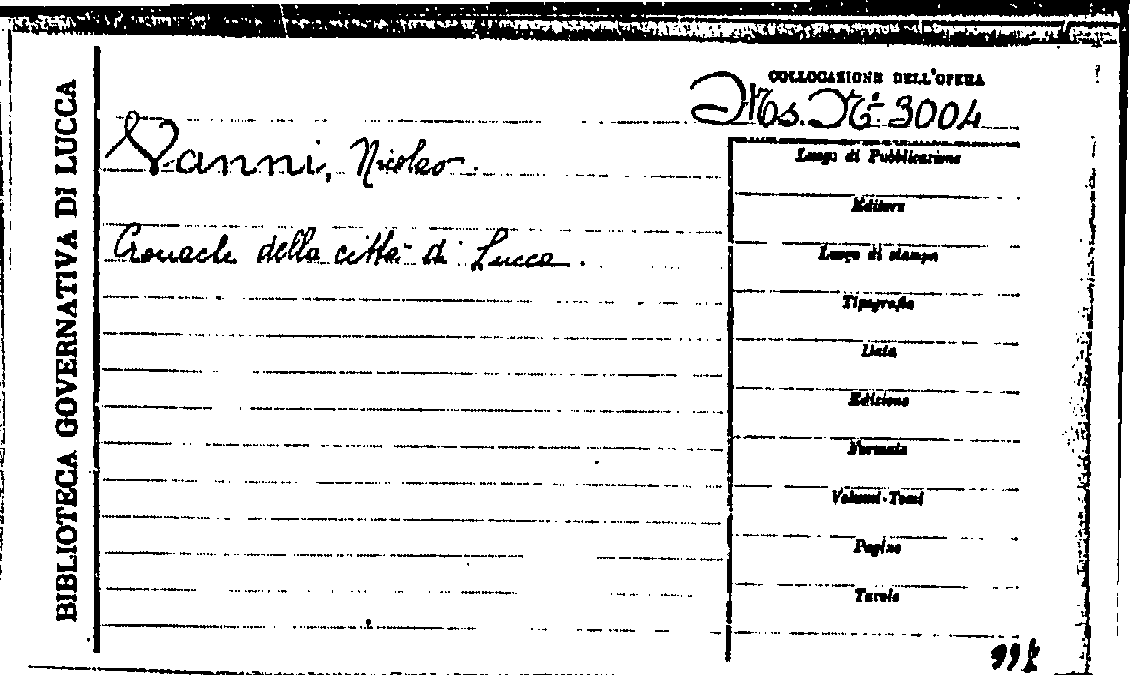 BIBLIOTECA GOVERNATIVA DI LUCCA
COLLOCAZIONE DELL'OPERA
Ms. Nº 3004
Vanni, Nicolao.
Cronache della città di Lucca.
Luogo di Pubblicazione
Editore
Luogo di stampa
Tipografia
Data
Edizione
Formato
Volumi-Tomi
Pagine
Tavole